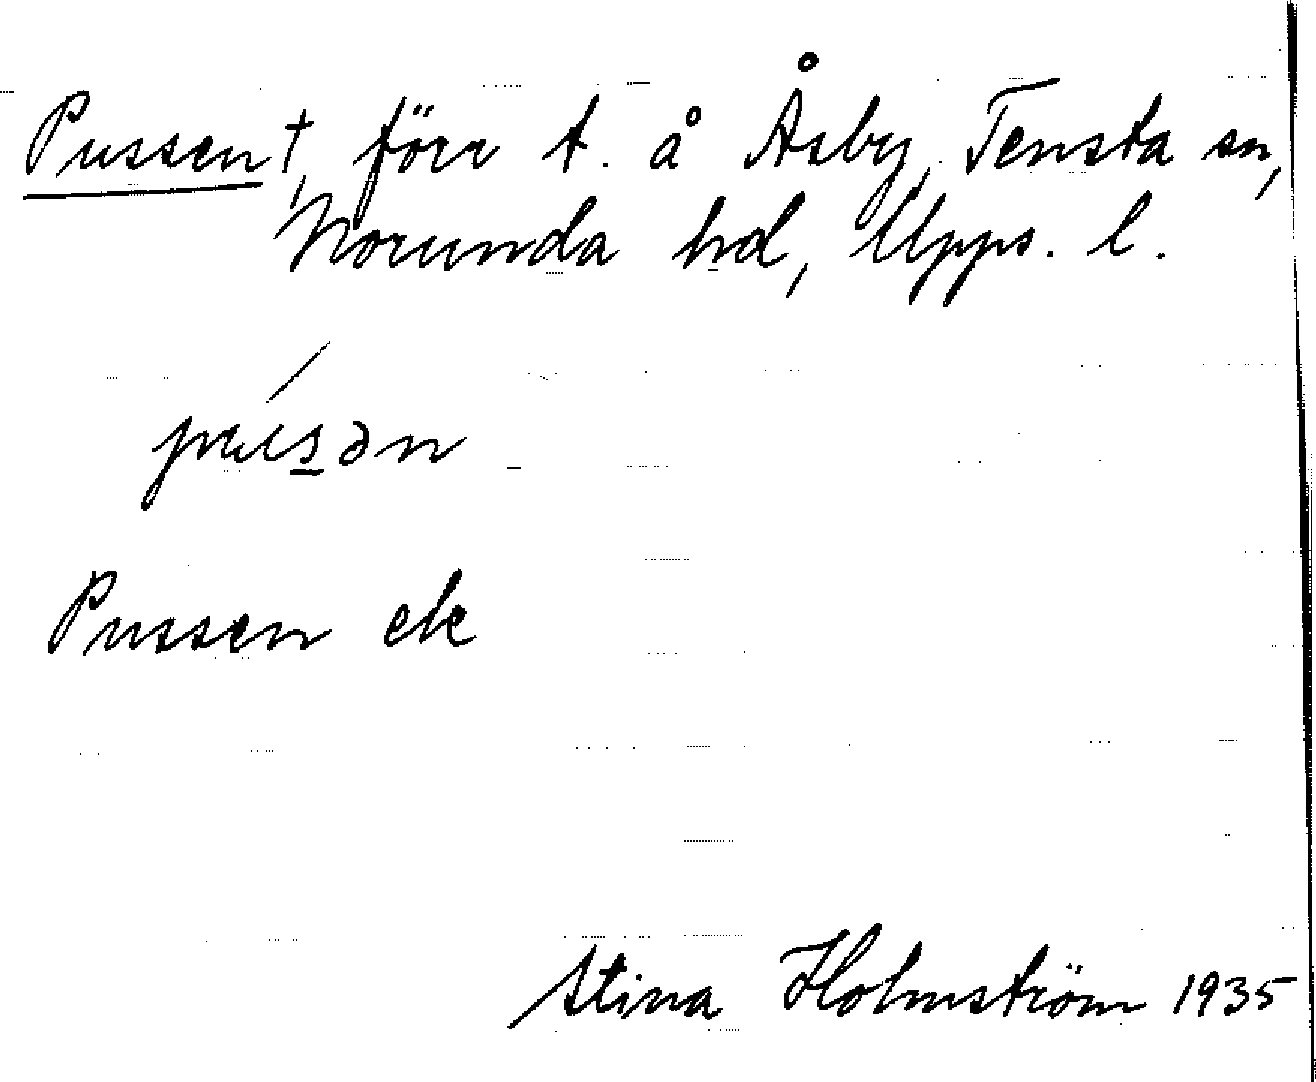 Pussen †, förr t. å Åsby, Tensta sn,
Norunda hd, Upps. l.
pusən
Pussen ek
Stina Holmström 1935